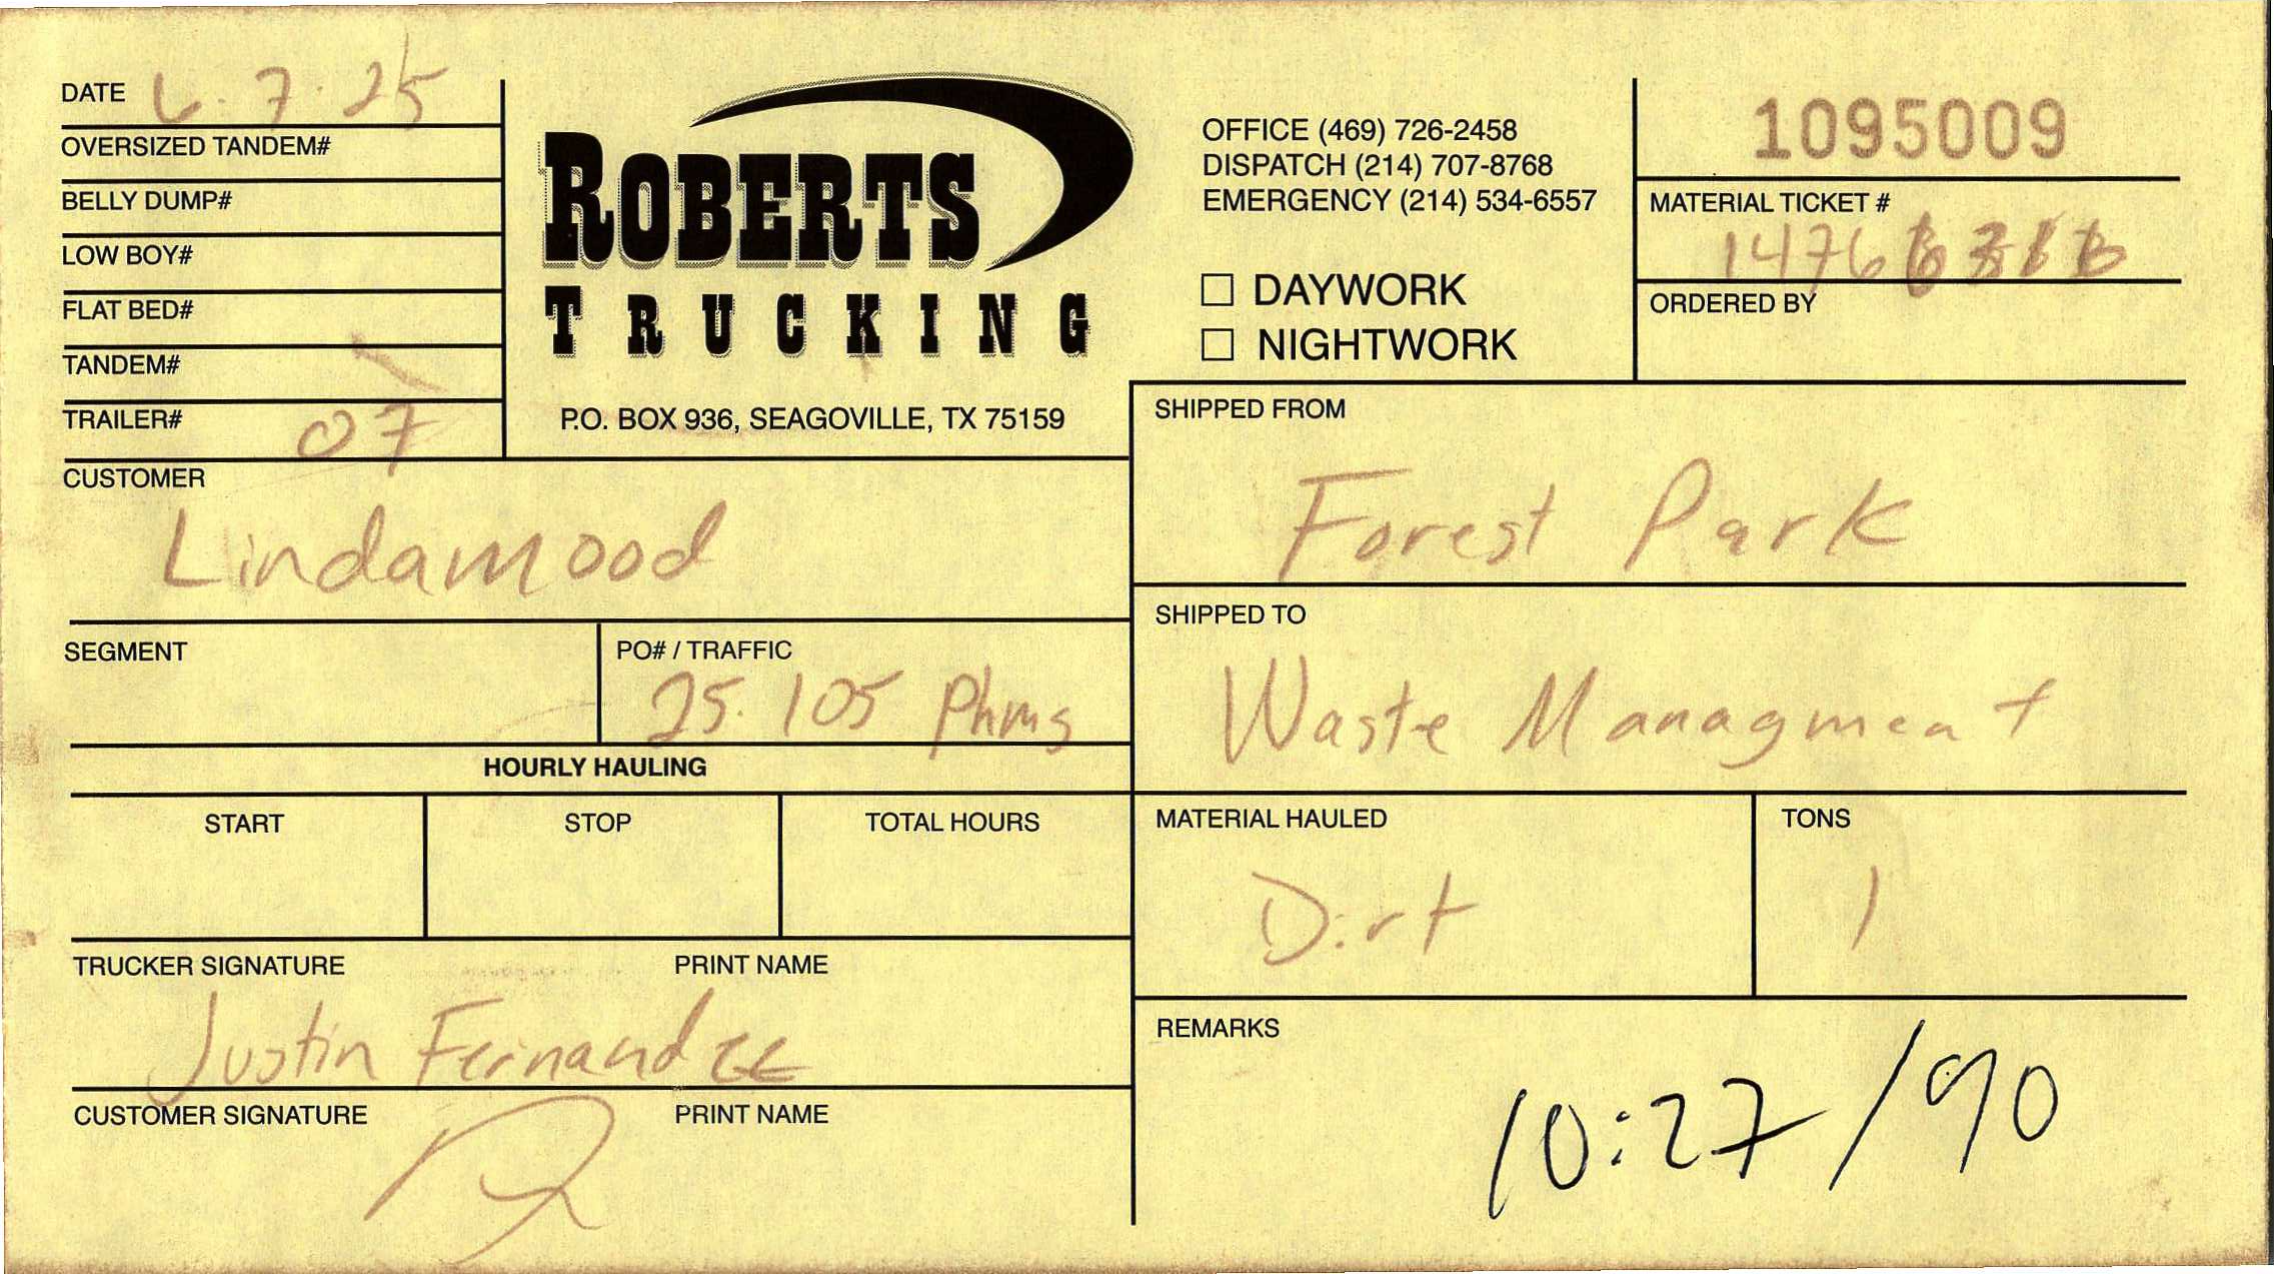 DATE 6.7.25
OVERSIZED TANDEM#
BELLY DUMP#
LOW BOY#
FLAT BED#
TANDEM#
TRAILER# 07
ROBERTS
TRUCKING
P.O. BOX 936, SEAGOVILLE, TX 75159
OFFICE (469) 726-2458
DISPATCH (214) 707-8768
EMERGENCY (214) 534-6557
☐ DAYWORK
☐ NIGHTWORK
1095009
MATERIAL TICKET #
ORDERED BY
CUSTOMER
Lindamood
SHIPPED FROM
Forest Park
SEGMENT
PO# / TRAFFIC
25.105 Phms
SHIPPED TO
Waste Managment
HOURLY HAULING
START STOP TOTAL HOURS
MATERIAL HAULED
Dirt
TONS
1
TRUCKER SIGNATURE PRINT NAME
Justin Fernandez
CUSTOMER SIGNATURE PRINT NAME
REMARKS
10:27/90